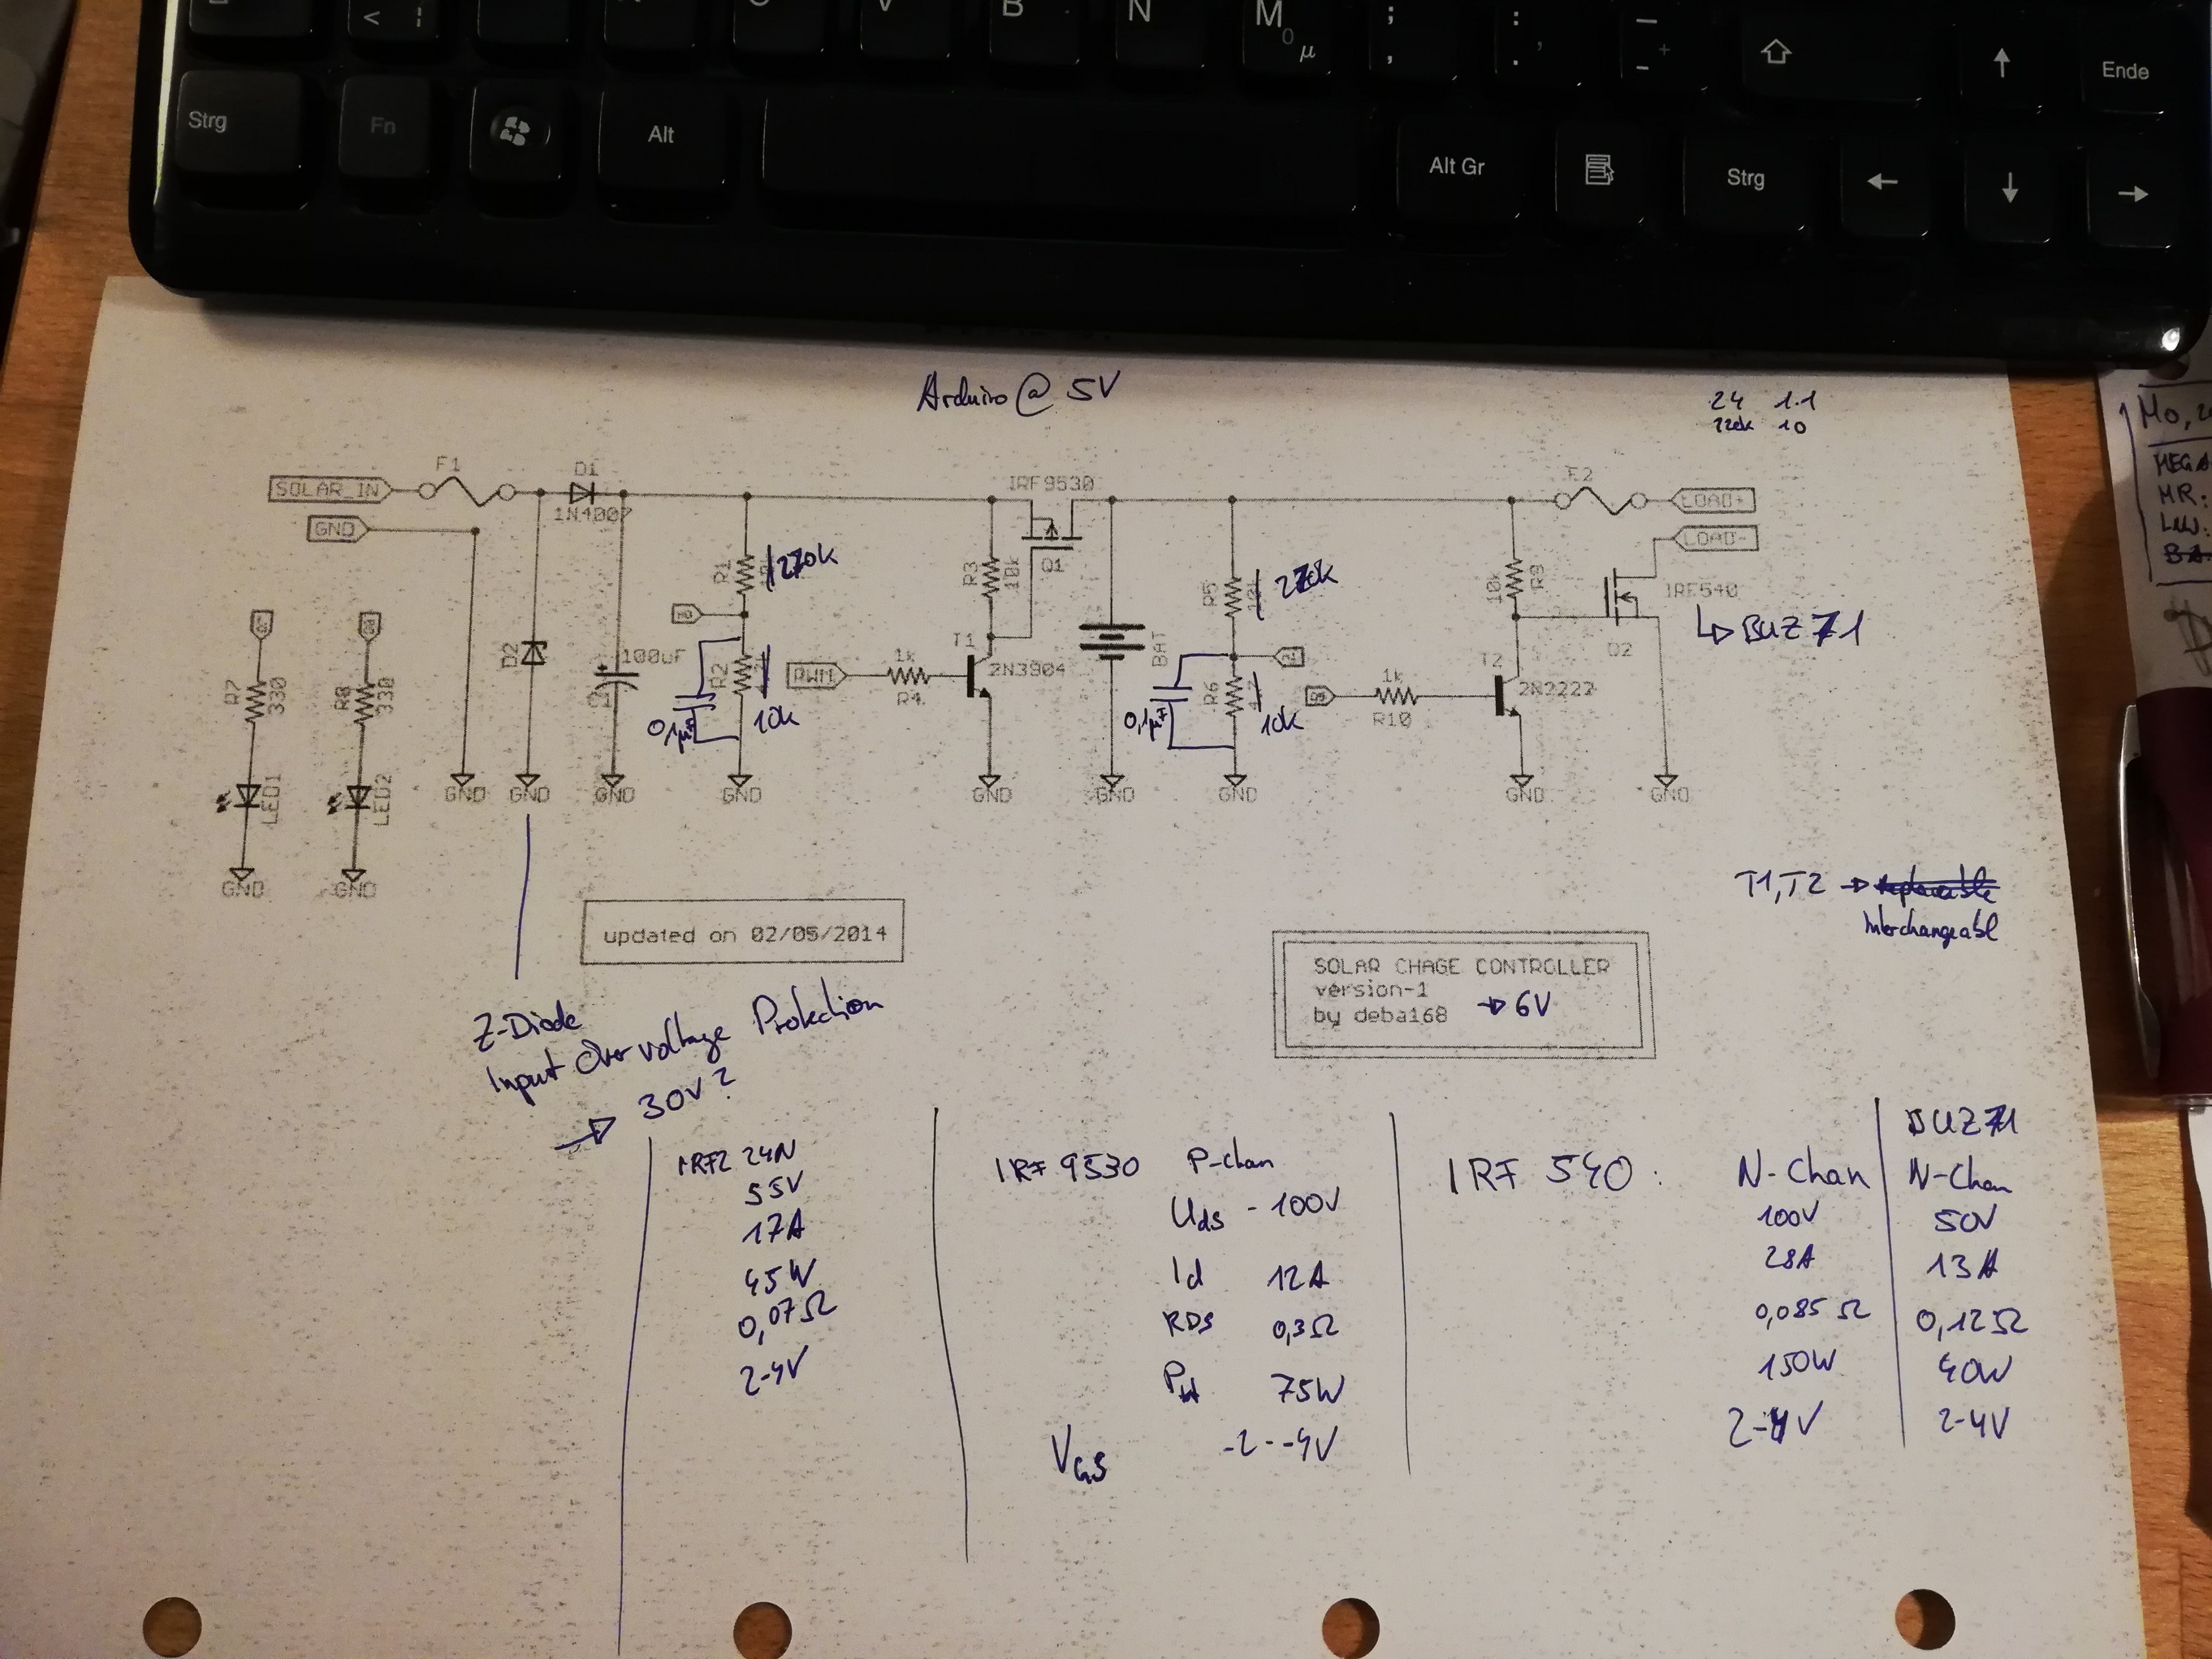 V
B
N
M
0
µ
;
,
:
.
Ende
Strg
Fn
Alt
Alt Gr
Strg
Arduino @ 5V
24 1.1
220k 10
Mo,
MR:
F1
D1
SOLAR_IN
1N4007
GND
IRF9530
Q1
F2
LOAD+
LOAD-
R1
270k
R3
10k
R5
270k
10k
R9
IRF540
↳ BUZ71
Q2
R7
330
R8
330
D2
100uF
C1
R2
10k
0,1µF
PWM
1k
R4
T1
2N3904
BAT
R6
10k
0,1µF
1k
R10
T2
2N2222
LED1
LED2
GND
GND
GND
GND
GND
GND
GND
GND
GND
GND
GND
T1,T2 → replaceable
Interchangeabl
updated on 02/05/2014
SOLAR CHAGE CONTROLLER
version-1
by deba168 → 6V
Z-Diode
Input Over voltage Protection
→ 30V?
IRFZ 24N
55V
17A
45W
0,07Ω
2-4V
IRF 9530 P-Chan
Uds -100V
Id 12A
RDS 0,3Ω
Ptot 75W
VGS -2--4V
IRF 540: N-Chan
100V
28A
0,085 Ω
150W
2-4V
BUZ71
N-Chan
50V
13A
0,12Ω
40W
2-4V